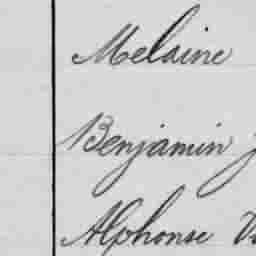 Melaine
Benjamin
Alphonse